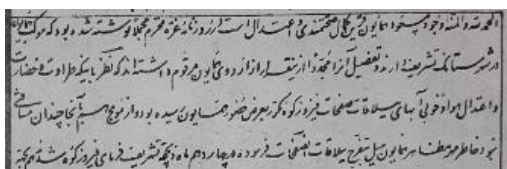 الحمد لله و المنه وجود مسعود همایون قرین کمال صحتمندی و اعتدال است در روزنامه غره محرم مجملا نوشته شده بود که موکب همایون
در شهرستانک تشریف دارند و تفصیل آنرا مجددا از قراری از اردوی همایون مرقوم داشته‌اند که نظر باینکه طراوت و خضارت
و اعتدال هوا و خوبی آبهای ییلاقات صفحات فیروزکوه مکرر بعرض حضور همایون رسیده بود و از موکب همایون تا آنجا چندان مسافتی
نبود خاطر همایون میل تفرج ییلاقات آن صفحات فرموده در چهاردهم ماه ذیحجه تشریف فرمای فیروزکوه شدند